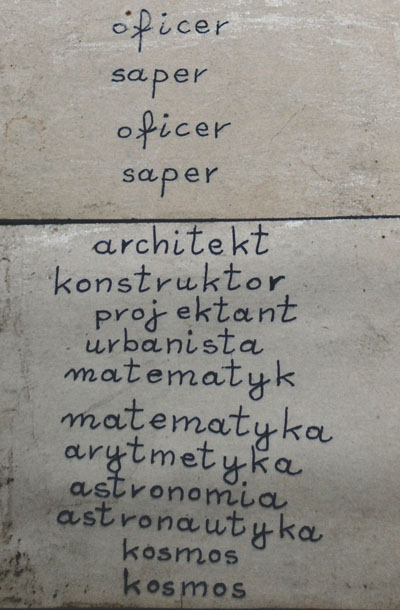 oficer
saper
oficer
saper
architekt
konstruktor
projektant
urbanista
matematyk
matematyka
arytmetyka
astronomia
astronautyka
kosmos
kosmos